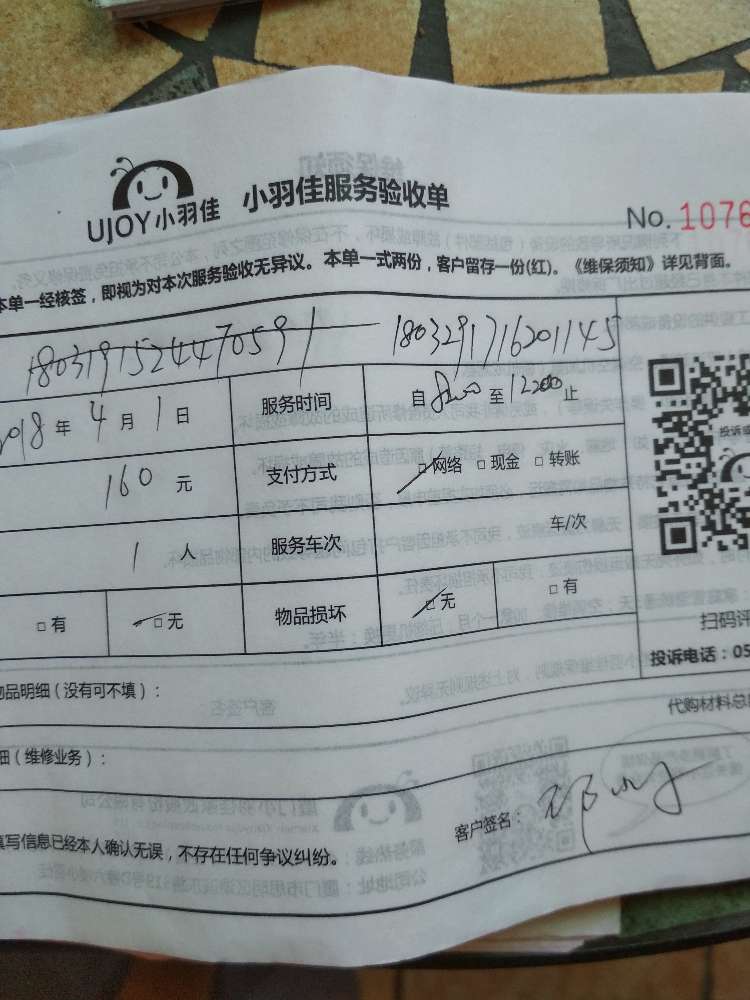 UJOY小羽佳 小羽佳服务验收单
No. 1076
本单一经核签，即视为对本次服务验收无异议。本单一式两份，客户留存一份(红)。《维保须知》详见背面。
180319152447059 1803291716201145
2018年4月1日 服务时间 自8:00至12:00止
160元 支付方式 □网络 □现金 □转账
投诉或
1人 服务车次 车/次
□有 □无 物品损坏 □无 □有
扫码评
投诉电话：05
物品明细（没有可不填）：
代购材料总
细（维修业务）：
客户签名：
填写信息已经本人确认无误，不存在任何争议纠纷。